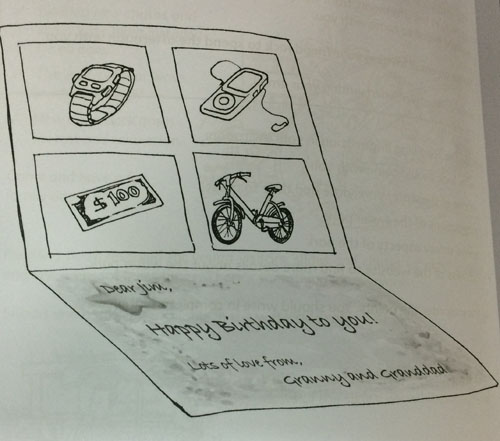 $100
Dear Jim,
Happy Birthday to you!
Lots of love from,
Granny and Granddad